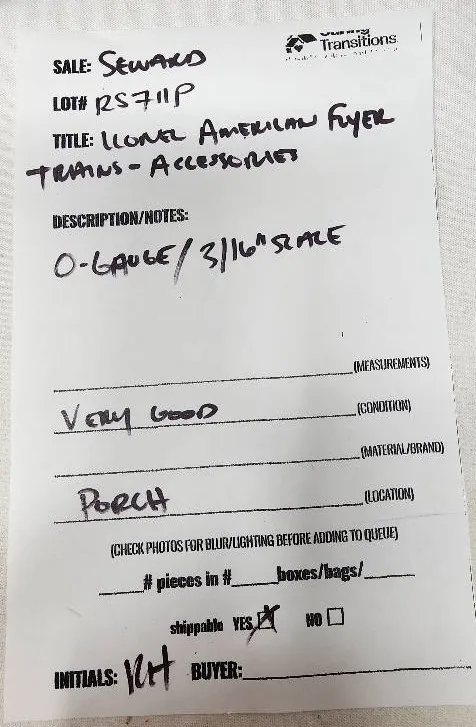 Transitions
SALE: SEWARD
LOT# RS711P
TITLE: LIONEL AMERICAN FLYER
TRAINS - ACCESSORIES
DESCRIPTION/NOTES:
O-GAUGE/3/16" SCALE
(MEASUREMENTS)
VERY GOOD (CONDITION)
(MATERIAL/BRAND)
PORCH (LOCATION)
(CHECK PHOTOS FOR BLUR/LIGHTING BEFORE ADDING TO QUEUE)
_____# pieces in #_____boxes/bags/_____
shippable YES ☒ NO ☐
INITIALS: RH BUYER: